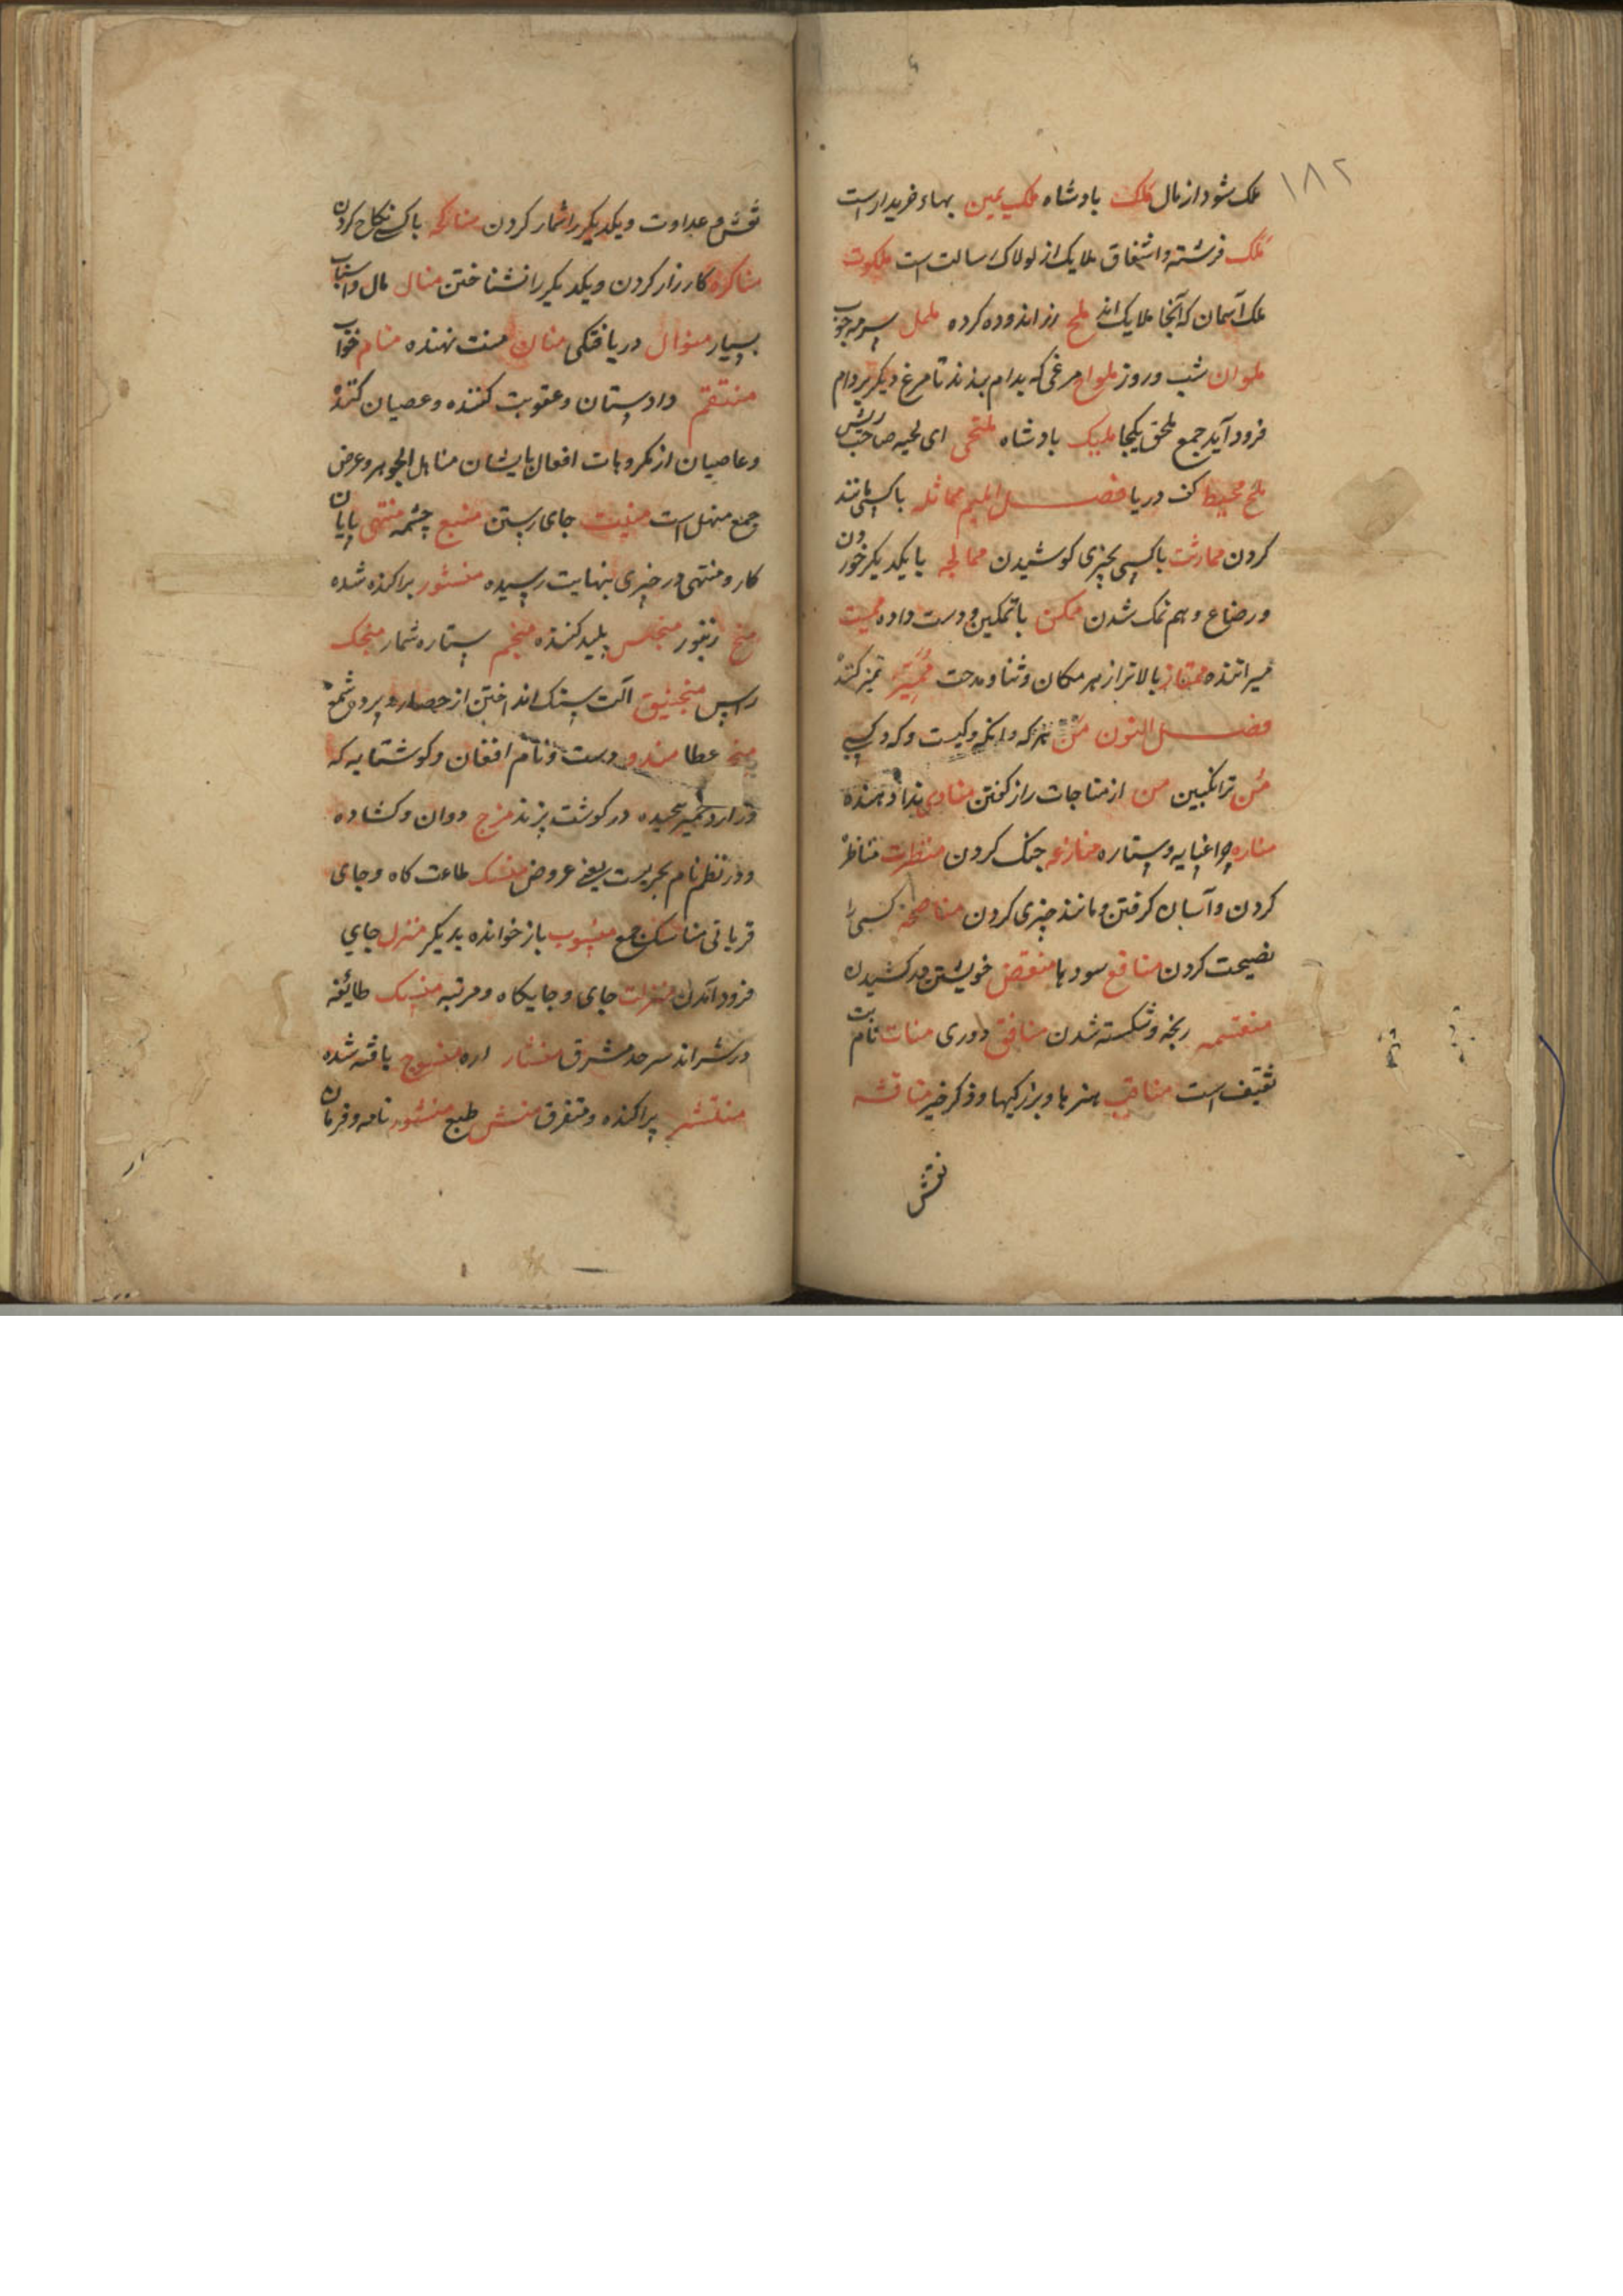 ۱۸۲
ملک شود از مال ملک بادشاه ملک یمین بهاء خریدار است
ملک فرشته و اشتقاق ملایک از لولاک رسالت است ملکوت
ملک آسمان که آنجا ملایک اند ملمع زر اندوده کرده ململ
ملوان شب و روز ملواح مرغی که بدام بندند تا مرغ دیگر بر دام
فرود آید جمع ملحق یکجا ملیک بادشاه ملتحی ای لحیه صاحب ریش
ملح محیط کف دریا فصل المیم مماثله با کسی مانند
کردن ممارثت با کسی بچیزی کوشیدن ممالحه با یکدیکر خوردن
و رضاع و هم نمک شدن ممکن با تمکین و دست داده ممیت
میراننده ممتاز بالاتر از هر مکان و ثنا و مدحت ممیز تمیز کننده
فصل النون من هرکه و آنکه و کیست و که و کسی
من ترانکبین من از مناجات راز کفتن منادی ندا دهنده
مناره چراغپایه و ستاره منازعه جنک کردن منظرات مناظره
کردن و آسان کرفتن و مانند چیزی کردن مناصحه کسی را
نصیحت کردن منافع سودها منقض خویشتن در کشیدن
ریخه و شکسته شدن منافق دوری منات نام بت
ثقیف است مناقب هنرها و بزرکیها و ذکر خیر مناقشه
نقش
نقش و عداوت و یکدیکر را شمار کردن مناکحه با کسی نکاح کردن
مناکره کارزار کردن و یکدیکر را نشناختن منال مال و اسباب
بسیار منوال دریافتکی منان منت نهنده منام خواب
منتقم دادستان و عقوبت کننده و عصیان کننده
و عاصیان از مکروهات افعال بایشان مناهل الجوهر و عرض
جمع منهل است منبت جای رستن منبع چشمه منتهی پایان
کار و منتهی در چیزی بنهایت رسیده منثور پراکنده شده
منج زنبور منجس پلید کننده منجم ستاره شمار منجک
منجنیق آلت سنک انداختن از حصار و بیرون
منح عطا مندو دست و نام افغان و کوشتابه که
در کوشت پزند منرج دوان و کشاده
و در نظم نام بحریست یعنی عروض منسک طاعت کاه و جای
قربانی مناسک جمع منسوب باز خوانده بدیکر منزل جای
فرود آمدن منزلت جای و جایکاه و مرتبه منسک طائفه
سرحد مشرق منشار اره منسوج بافته شده
منتشر پراکنده و متفرق منش طبع منشور نامه و فرمان